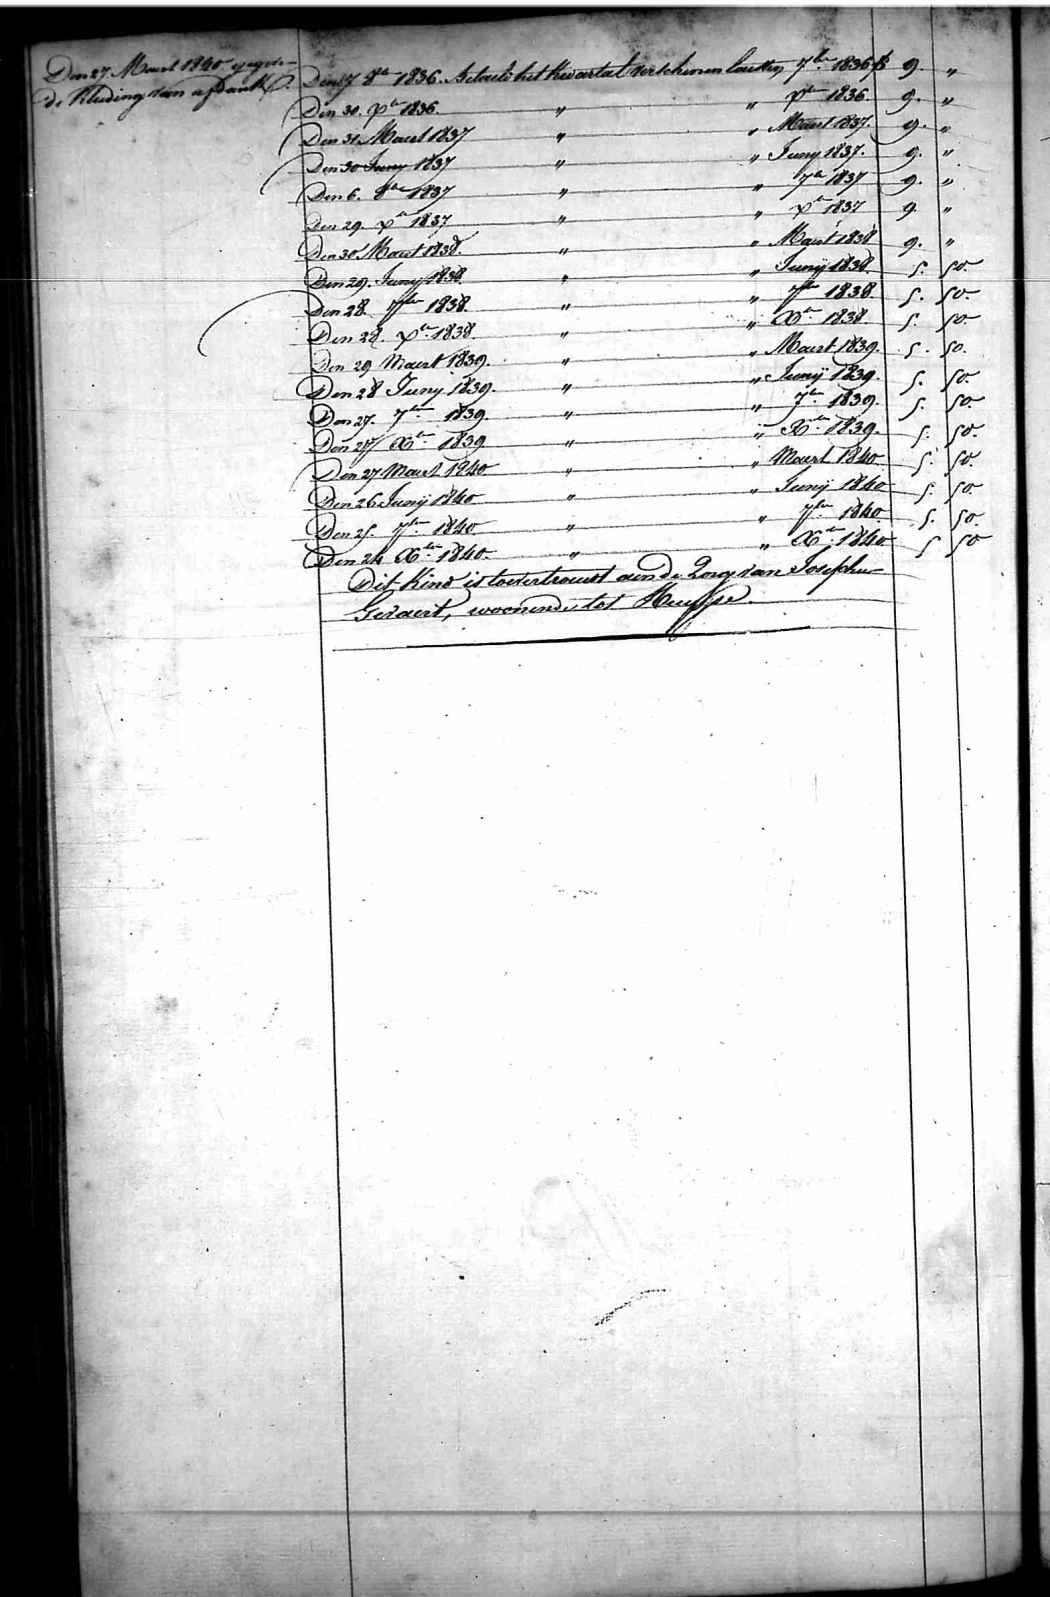 Den 27. Maart 1840 gegeven
de Kleeding van afdank
Den 7 8ber 1836. Betaelt het kwartael verschenen laetsten 7ber 1836 f 9. "
Den 30. Xber 1836. " " Xber 1836. 9. "
Den 31 Maart 1837 " " Maart 1837. 9. "
Den 30 Juny 1837 " " Juny 1837. 9. "
Den 6. 8ber 1837 " " 7ber 1837 9. "
Den 29. Xber 1837 " " Xber 1837 9 "
Den 30 Maart 1838. " " Maart 1838 9. "
Den 29. Juny 1838. " " Junij 1838. 5. 50.
Den 28. 7ber 1838. " " 7ber 1838. 5. 50.
Den 28. Xber 1838. " " Xber 1838 5. 50.
Den 29 Maart 1839. " " Maart 1839. 5. 50.
Den 28 Juny 1839. " " Junij 1839. 5. 50.
Den 27. 7ber 1839. " " 7ber 1839. 5. 50.
Den 27 Xber 1839 " " Xber 1839. 5. 50.
Den 27 Maart 1840 " " Maart 1840 5. 50.
Den 26 Junij 1840 " " Junij 1840 5. 50.
Den 25. 7ber 1840 " " 7ber 1840. 5. 50.
Den 24 Xber 1840. " " Xber 1840 5 50
Dit Kind is toevertrouwt aen de Zorg van Josephus
Gevaert, woonende tot Heusse.